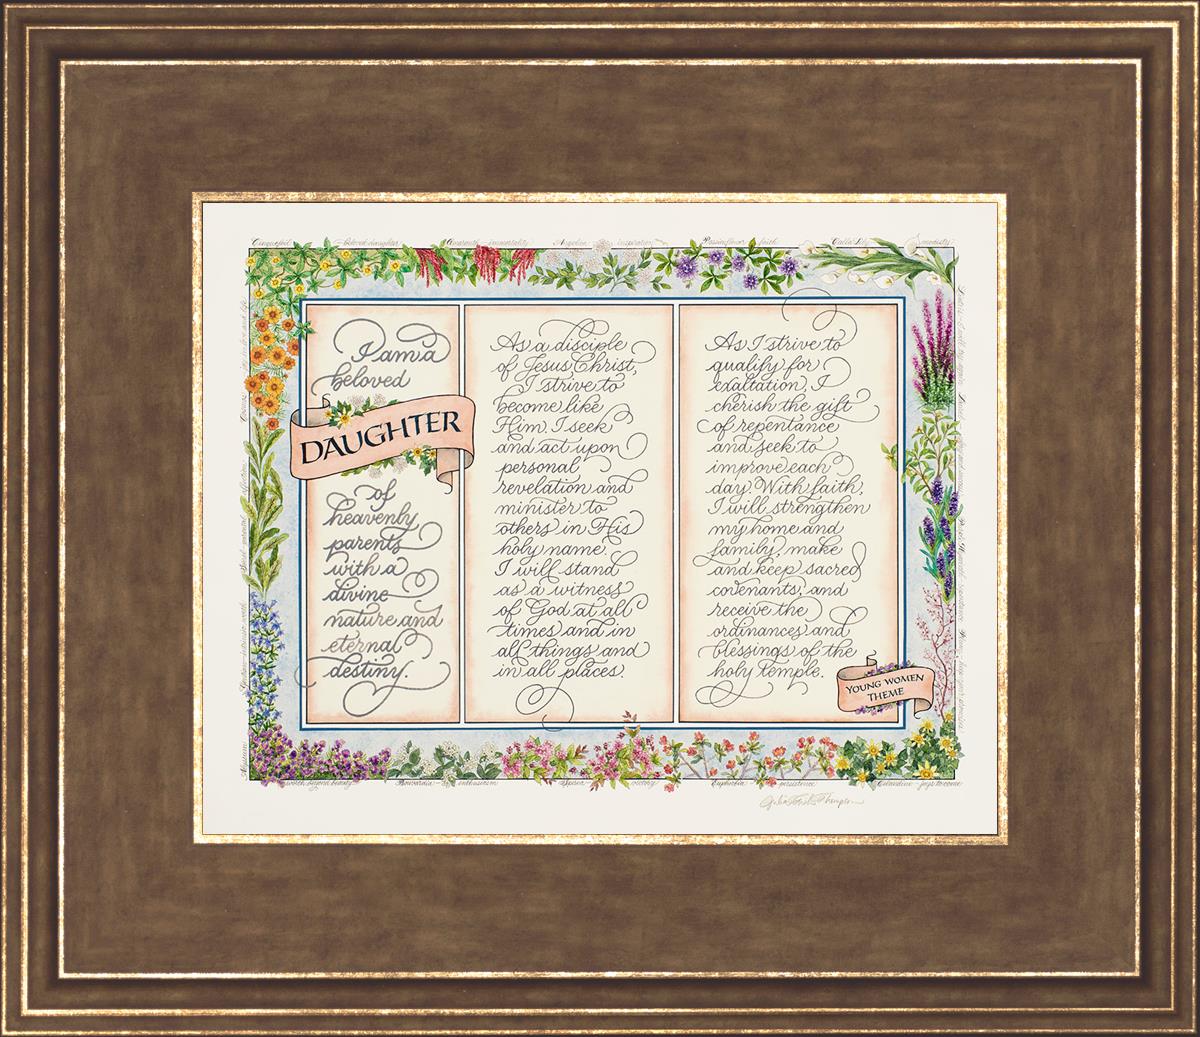 Cinquefoil – beloved daughter Amaranth – immortality Angelica – inspiration Passionflower – belief Calla Lily – modesty
I am a
beloved
DAUGHTER
of
heavenly
parents
with a
divine
nature and
eternal
destiny.
As a disciple
of Jesus Christ,
I strive to
become like
Him. I seek
and act upon
personal
revelation and
minister to
others in His
holy name.
I will stand
as a witness
of God at all
times and in
all things and
in all places.
As I strive to
qualify for
exaltation, I
cherish the gift
of repentance
and seek to
improve each
day. With faith,
I will strengthen
my home and
family, make
and keep sacred
covenants, and
receive the
ordinances and
blessings of the
holy temple.
YOUNG WOMEN
THEME
Alyssum – worth beyond beauty Bouvardia – enthusiasm Spirea – victory Euphorbia – persistence Celandine – joys to come